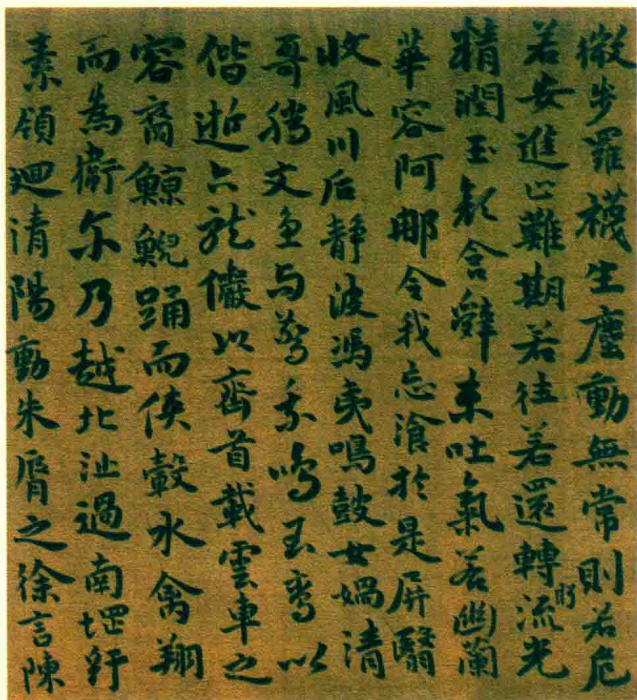 微步羅襪生塵動無常則若危
若安進止難期若往若還轉眄流光
精潤玉顏含辭未吐氣若幽蘭
華容阿郍令我忘湌於是屏翳
收風川后靜波馮夷鳴鼓女媧清
哥騰文魚与警乘鳴玉鸞以
偕逝六龍儼以齊首載雲車之
容裔鯨鯢踊而侠轂水禽翔
而為衛尓乃越北沚過南堽紆
素領迴清陽動朱脣之徐言陳